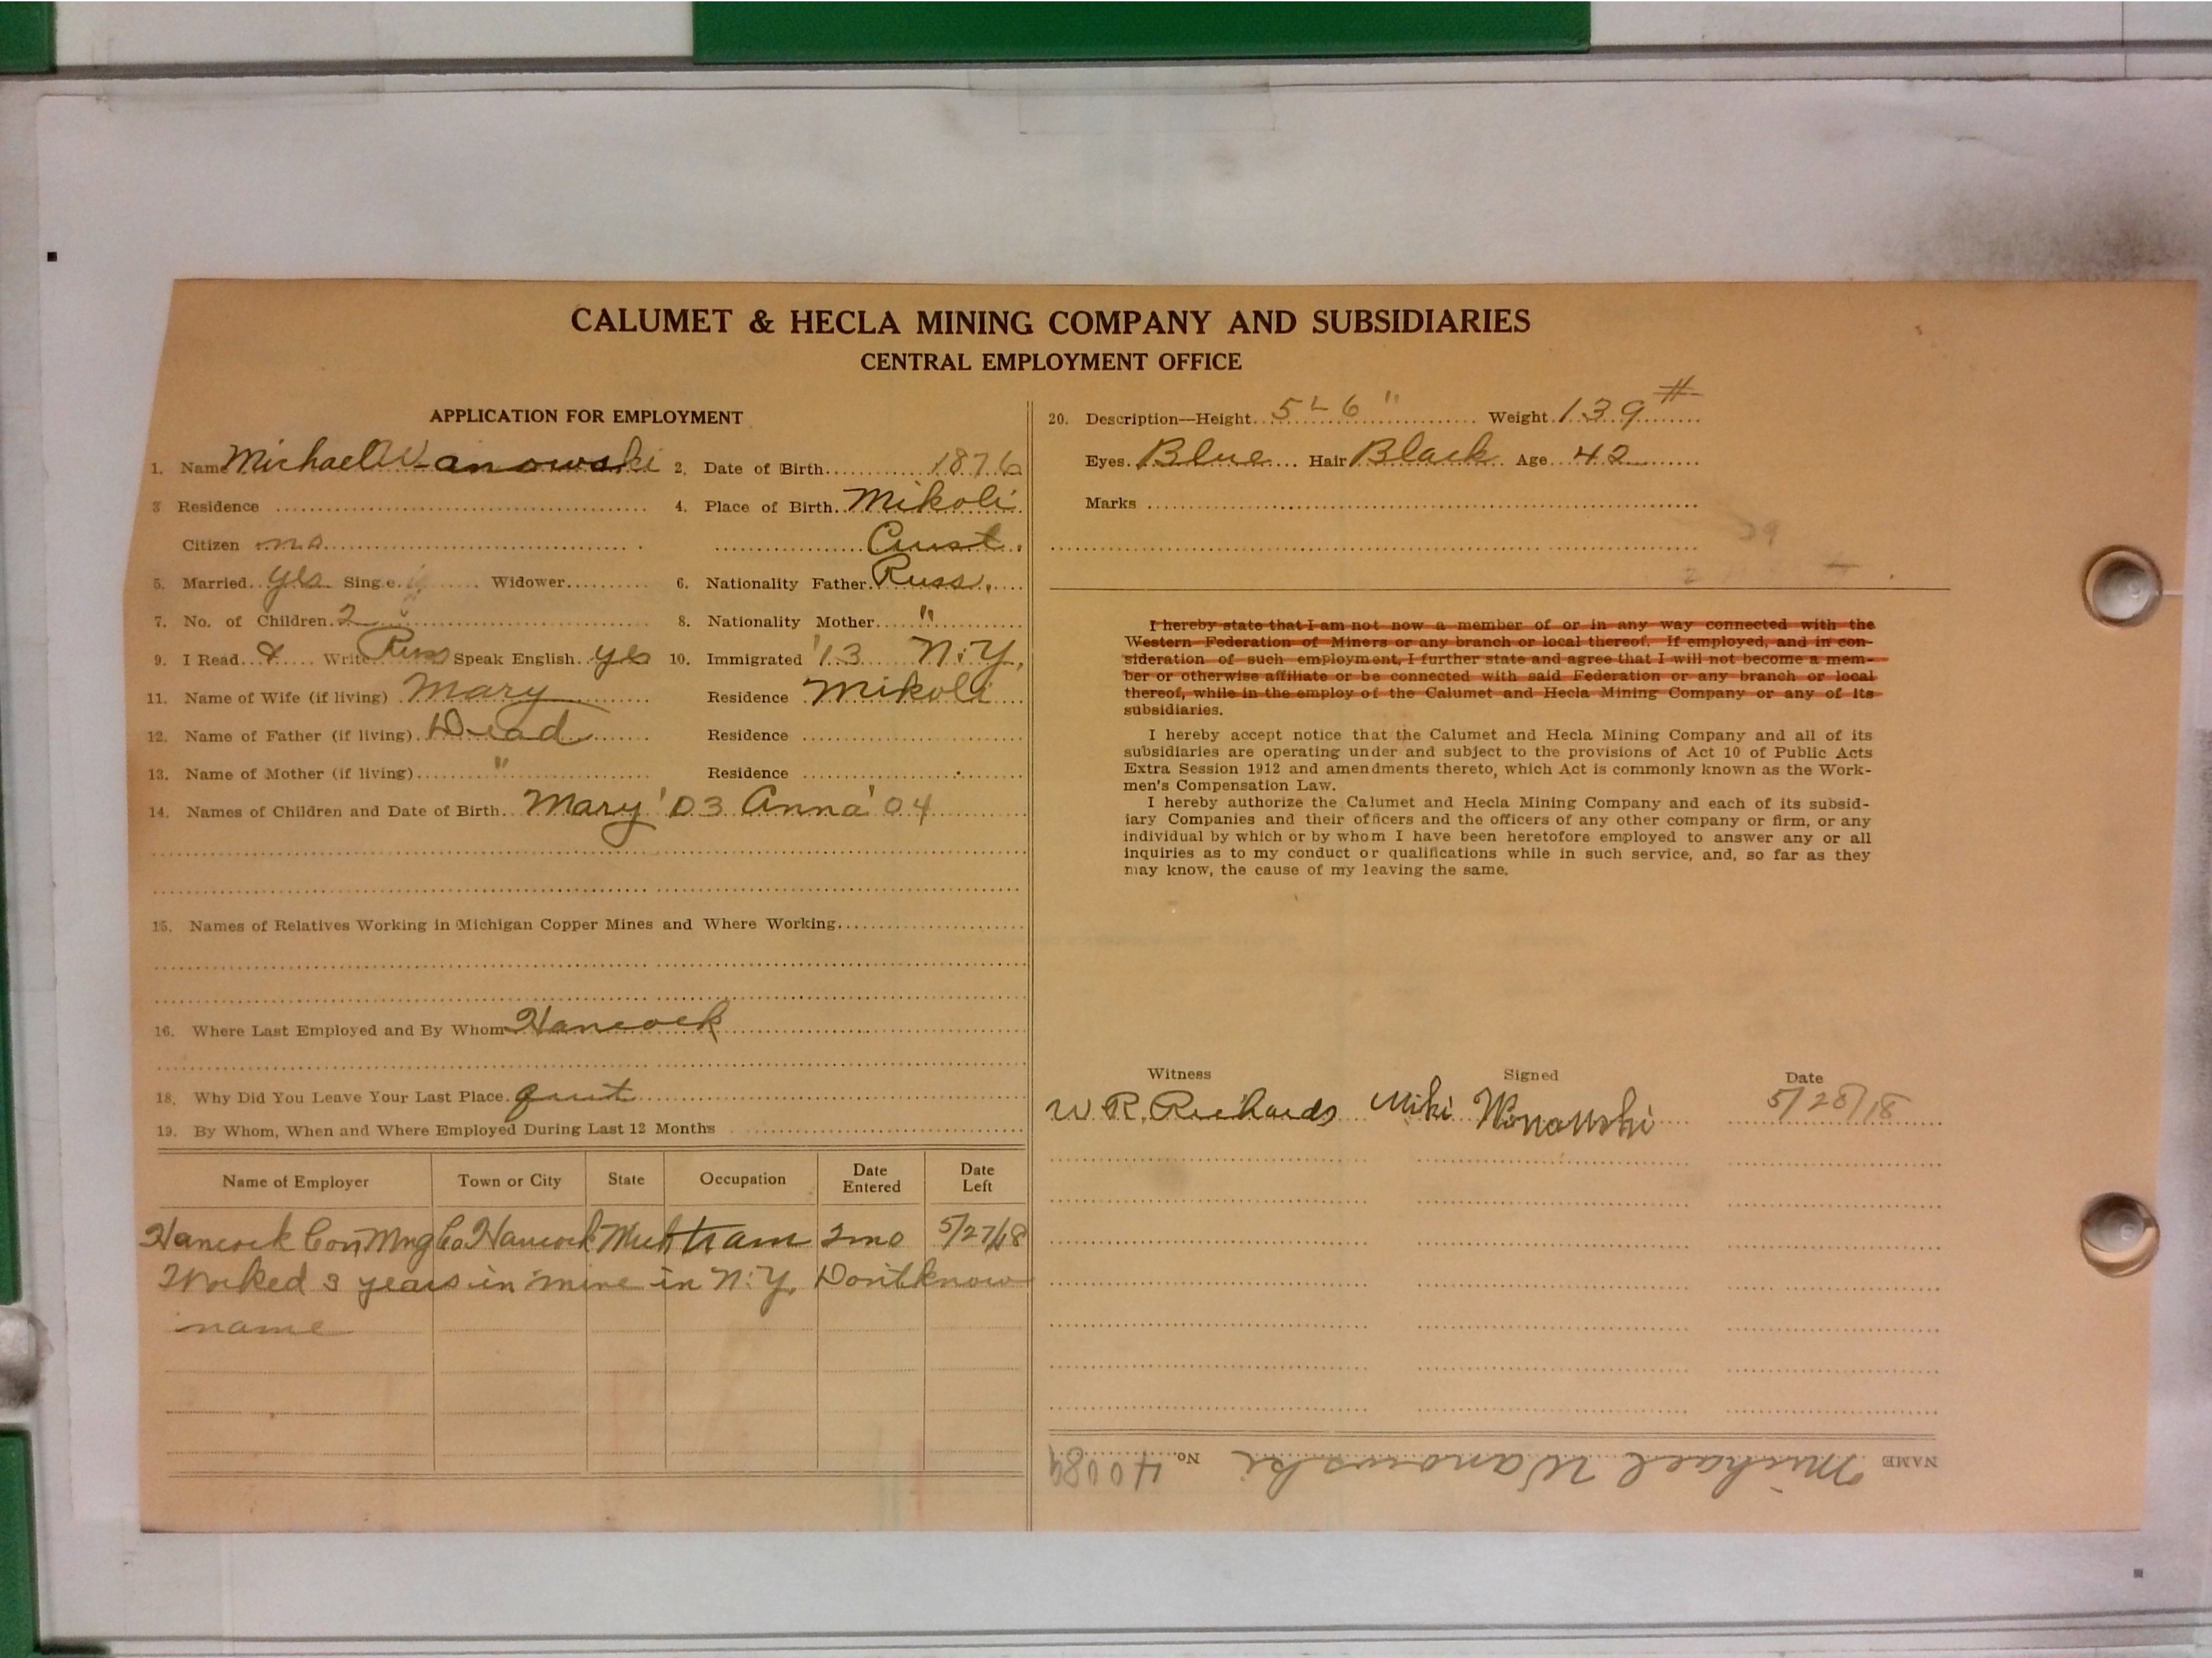 CALUMET & HECLA MINING COMPANY AND SUBSIDIARIES
CENTRAL EMPLOYMENT OFFICE
APPLICATION FOR EMPLOYMENT
1. Name Michael Wanowski 2. Date of Birth 1876
3 Residence 4. Place of Birth Mikoli
Citizen no Aust.
5. Married yes Single Widower 6. Nationality Father Russ.
7. No. of Children 2 8. Nationality Mother "
9. I Read & Write Russ Speak English yes 10. Immigrated '13 N.Y.
11. Name of Wife (if living) Mary Residence Mikoli
12. Name of Father (if living) Dead Residence
13. Name of Mother (if living) " Residence
14. Names of Children and Date of Birth Mary '03 Anna '04
15. Names of Relatives Working in Michigan Copper Mines and Where Working
16. Where Last Employed and By Whom Hancock
18. Why Did You Leave Your Last Place quit
19. By Whom, When and Where Employed During Last 12 Months
Name of Employer Town or City State Occupation Date Entered Date Left
Hancock Con Mng Co Hancock Mich tram 2 mo 5/27/18
Worked 3 years in mine in N.Y. Don't know
name
20. Description—Height 5'-6" Weight 139#
Eyes Blue Hair Black Age 42
Marks
I hereby state that I am not now a member of or in any way connected with the
Western Federation of Miners or any branch or local thereof. If employed, and in con-
sideration of such employment, I further state and agree that I will not become a mem-
ber or otherwise affiliate or be connected with said Federation or any branch or local
thereof, while in the employ of the Calumet and Hecla Mining Company or any of its
subsidiaries.
I hereby accept notice that the Calumet and Hecla Mining Company and all of its
subsidiaries are operating under and subject to the provisions of Act 10 of Public Acts
Extra Session 1912 and amendments thereto, which Act is commonly known as the Work-
men's Compensation Law.
I hereby authorize the Calumet and Hecla Mining Company and each of its subsid-
iary Companies and their officers and the officers of any other company or firm, or any
individual by which or by whom I have been heretofore employed to answer any or all
inquiries as to my conduct or qualifications while in such service, and, so far as they
may know, the cause of my leaving the same.
Witness Signed Date
W. R. Richards Miki Wonowski 5/28/18
NAME Michael Wanowski No. 40089